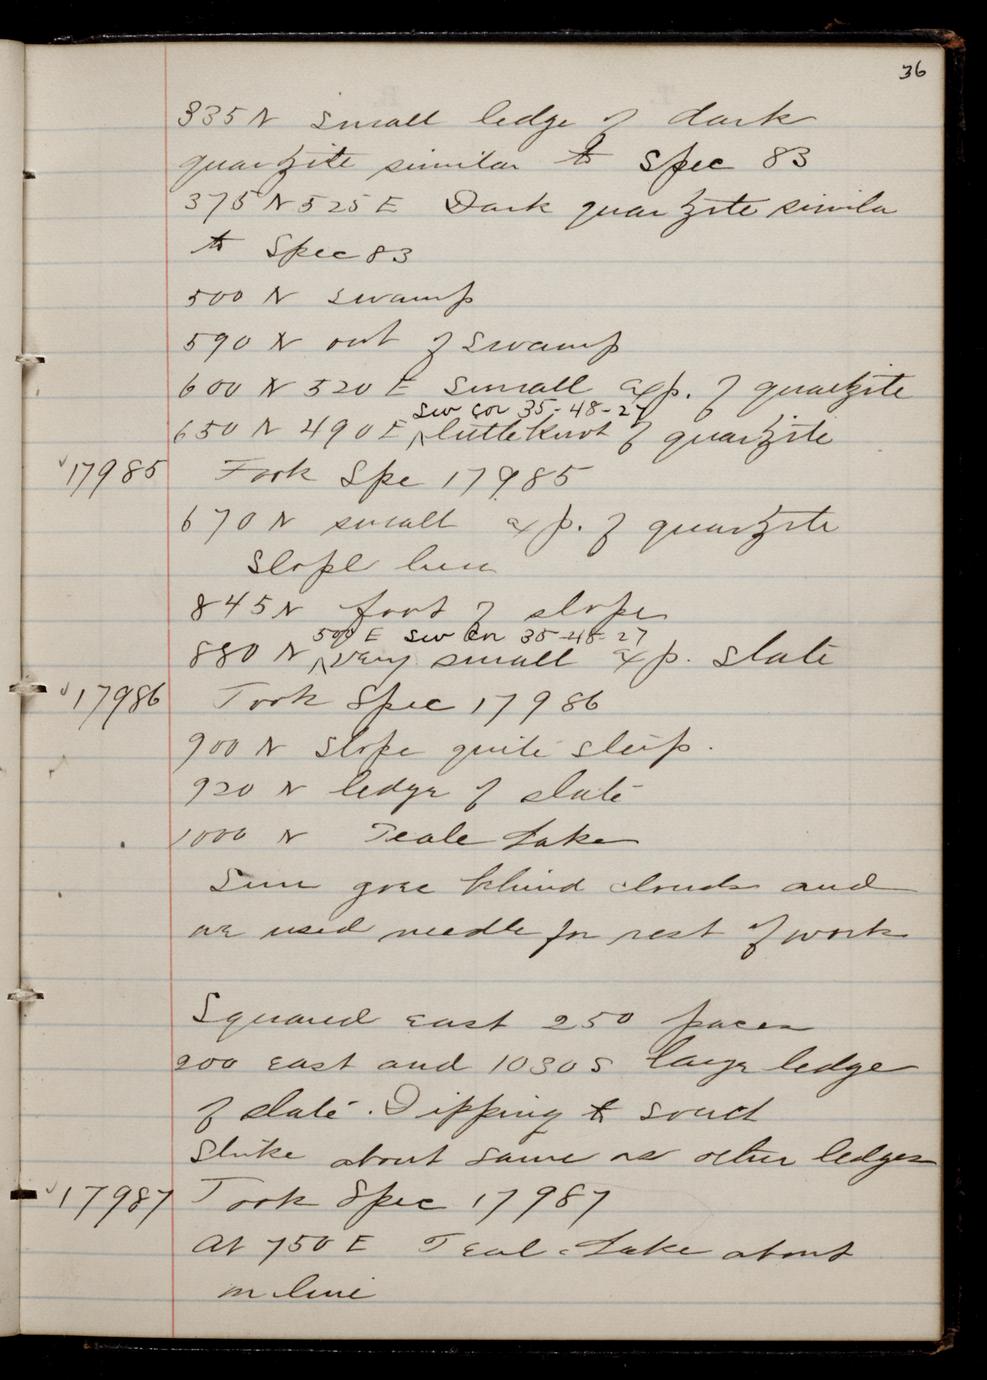 36
335 N small ledge of dark
quartzite similar to Spec 83
375 N 525 E Dark quartzite simila
to Spec 83
500 N swamp
590 N out of swamp
600 N 520 E small exp. of quartzite
SW Cor 35-48-27
650 N 490 E ^ little knob of quartzite
17985 Took Spe 17985
670 N small exp. of quartzite
Slope here
845 N foot of slope
500 E SW Cor 35-48-27
880 N ^ very small exp. slate
17986 Took Spec 17986
900 N Slope quite steep.
920 N ledge of slate
1000 N Teale Lake
Sun goes behind clouds and
we used needle for rest of work
Squared east 250 paces
200 east and 1030 S large ledge
of slate. Dipping to south
Strike about same as other ledges
17987 Took Spec 17987
At 750 E Teal Lake about
on line